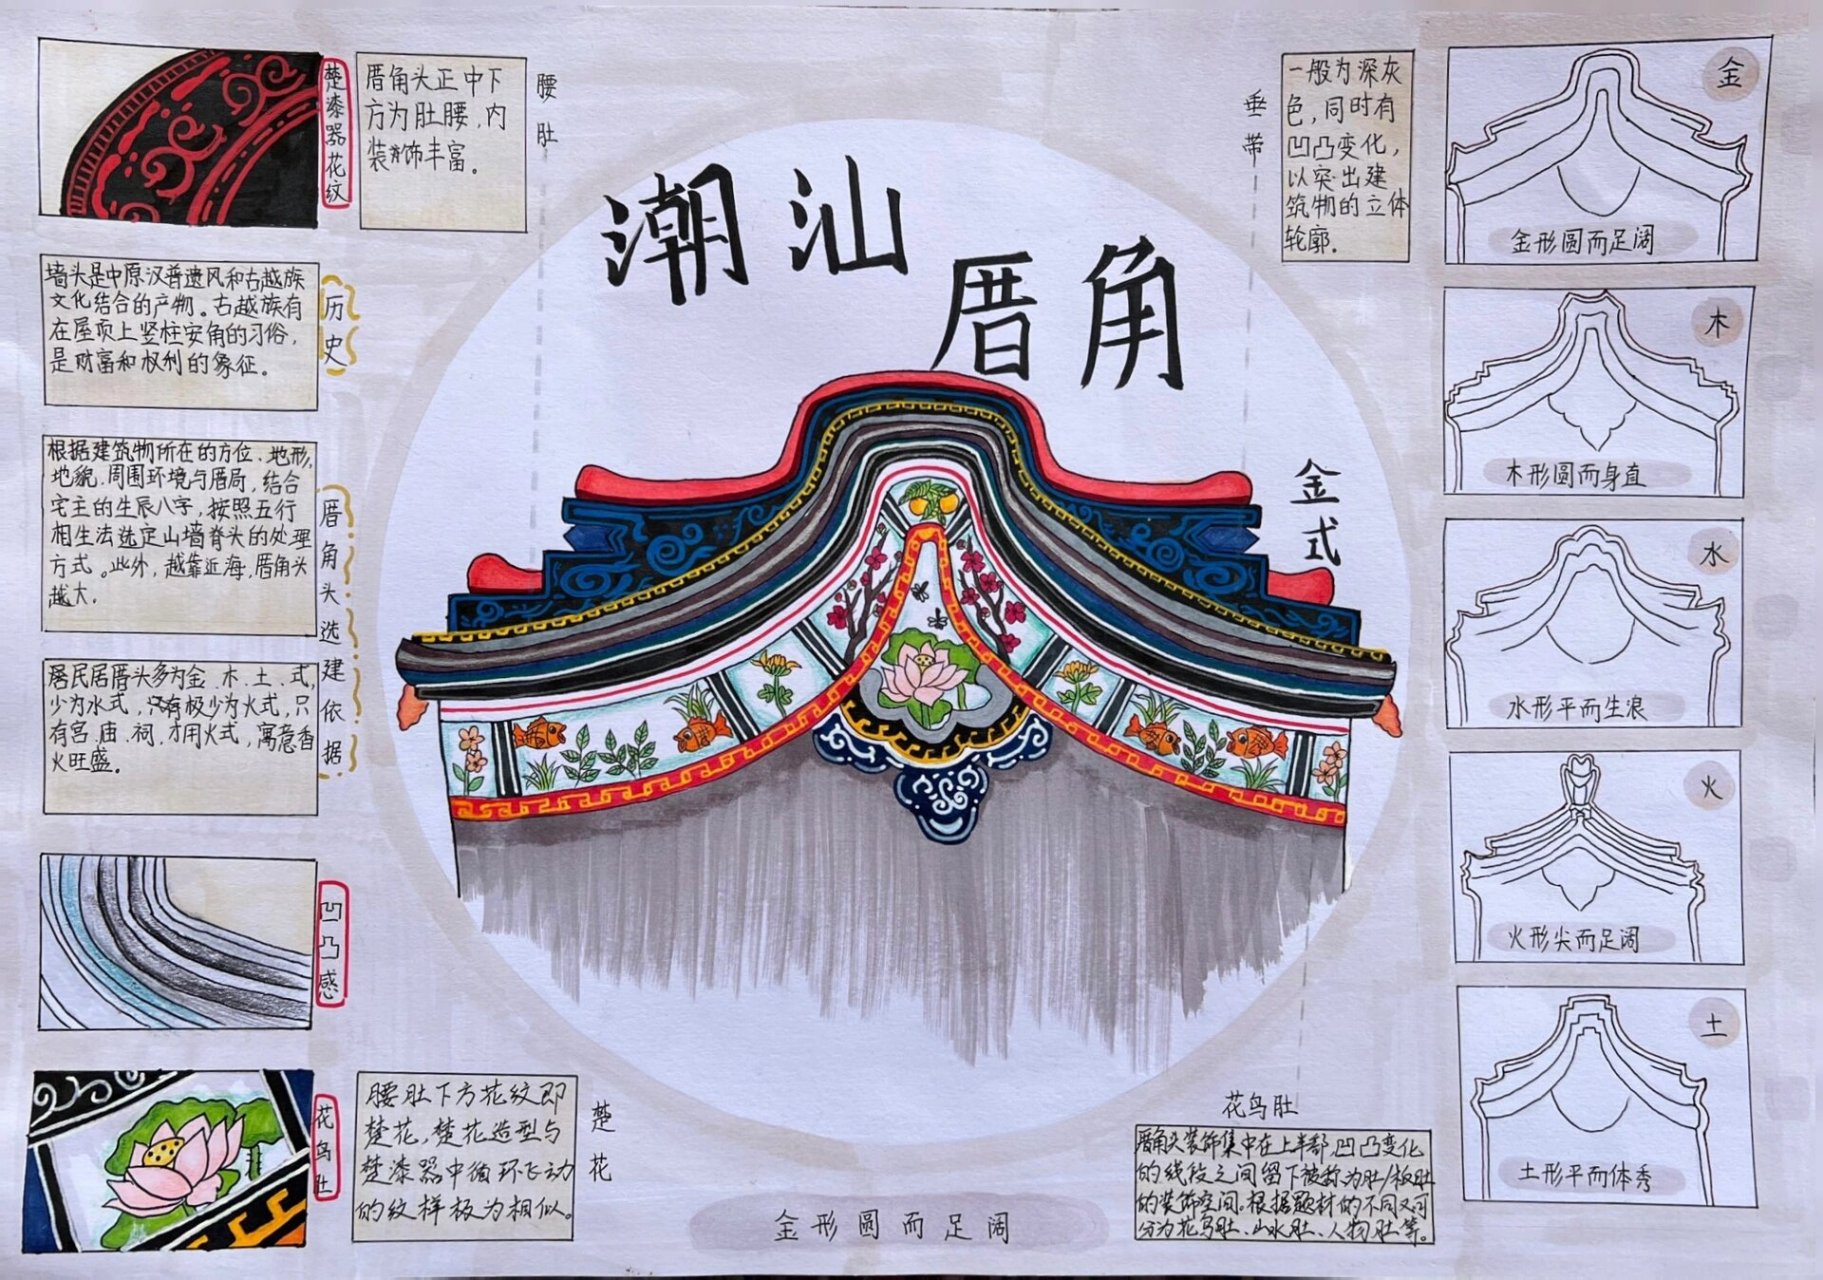 潮汕
厝角
金式
楚漆器花纹
厝角头正中下
方为肚腰，内
装饰丰富。
腰肚
历史
墙头是中原汉普遗风和古越族
文化结合的产物。古越族有
在屋顶上竖柱安角的习俗，
是财富和权利的象征。
厝角头选建依据
根据建筑物所在的方位、地形，
地貌、周围环境与厝局，结合
宅主的生辰八字，按照五行
相生法选定山墙脊头的处理
方式。此外，越靠近海，厝角头
越大．
居民居厝头多为金、木、土、式，
少为水式，只有极少为火式，只
有宫、庙、祠、才用火式，寓意香
火旺盛。
凹凸感
花鸟肚
腰肚下方花纹即
楚花，楚花造型与
楚漆器中循环飞动
的纹样极为相似。
楚花
金形圆而足阔
垂带
一般为深灰
色，同时有
凹凸变化，
以突出建
筑物的立体
轮廓．
花鸟肚
厝角头装饰集中在上半部，凹凸变化
的线段之间留下被称为肚/板肚
的装饰空间。根据题材的不同又可
分为花鸟肚、山水肚、人物肚等。
金
金形圆而足阔
木
木形圆而身直
水
水形平而生浪
火
火形尖而足阔
土
土形平而体秀